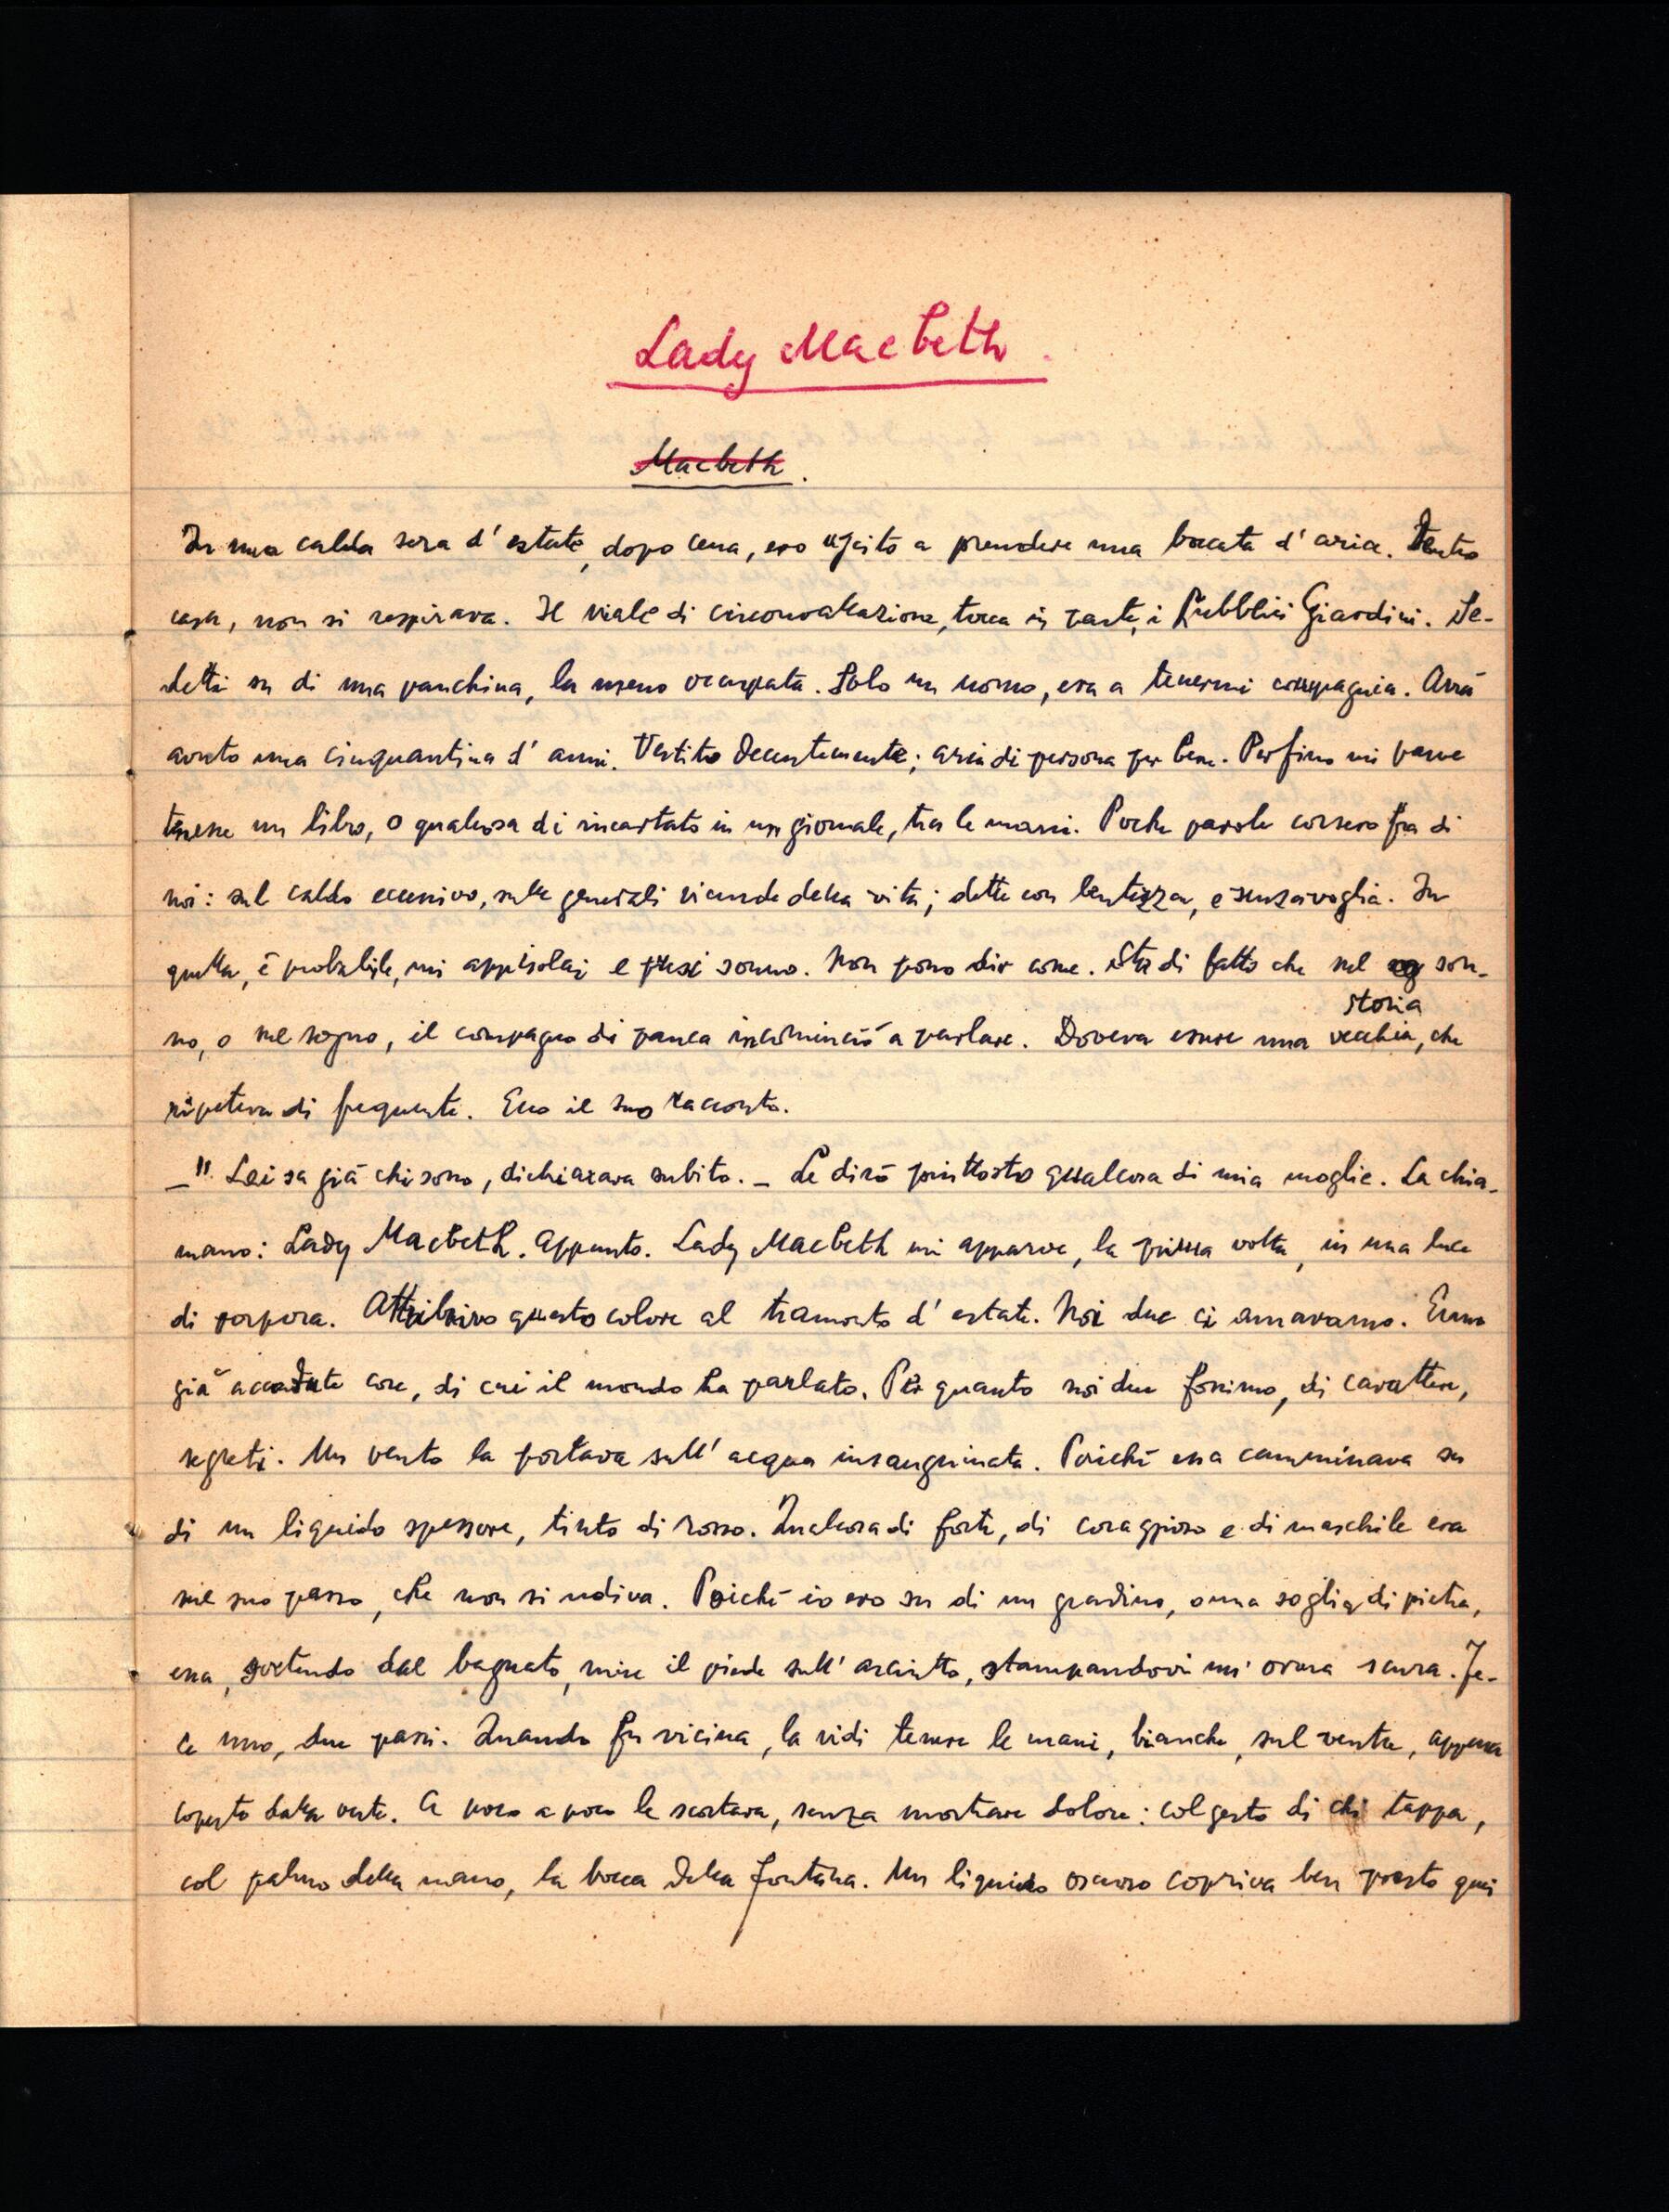 Lady Macbeth.
Macbeth.
In una calda sera d'estate, dopo cena, ero uscito a prendere una boccata d'aria. Dentro
casa, non si respirava. Il viale di circonvallazione, tocca in parte, i Pubblici Giardini. Se-
detti su di una panchina, la meno occupata. Solo un uomo, era a tenermi compagnia. Avrà
avuto una cinquantina d'anni. Vestito decentemente; aria di persona per bene. Perfino mi parve
tenesse un libro, o qualcosa di incartato in un giornale, tra le mani. Poche parole corsero fra di
noi: sul caldo eccessivo, sulle generali vicende della vita; dette con lentezza, e senza voglia. In
quella, è probabile, mi appisolai e presi sonno. Non posso dir come. Sta di fatto che nel son-
no, o nel sogno, il compagno di panca incominciò a parlare. Doveva essere una storia vecchia, che
ripeteva di frequente. Ecco il suo racconto.
_" Lei sa già chi sono, dichiarava subito. _ Le dirò piuttosto qualcosa di mia moglie. La chia-
mano: Lady Macbeth. Appunto. Lady Macbeth mi apparve, la prima volta, in una luce
di porpora. Attribuivo questo colore al tramonto d'estate. Noi due ci amavamo. Erano
già accadute cose, di cui il mondo ha parlato. Per quanto noi due fossimo, di carattere,
segreti. Un vento la portava sull'acqua insanguinata. Poiché essa camminava su
di un liquido spessore, tinto di rosso. Qualcosa di forte, di coraggioso e di maschile era
nel suo passo, che non si udiva. Poiché io ero su di un gradino, o una soglia di pietra,
essa, sortendo dal bagnato, mise il piede sull'asciutto, stampandovi un'orma scura. Fe-
ce uno, due passi. Quando fu vicina, la vidi tenere le mani, bianche, sul ventre, appena
coperto dalla veste. A poco a poco le scostava, senza mostrare dolore: col gesto di chi tappa,
col palmo della mano, la bocca della fontana. Un liquido oscuro copriva ben presto quei